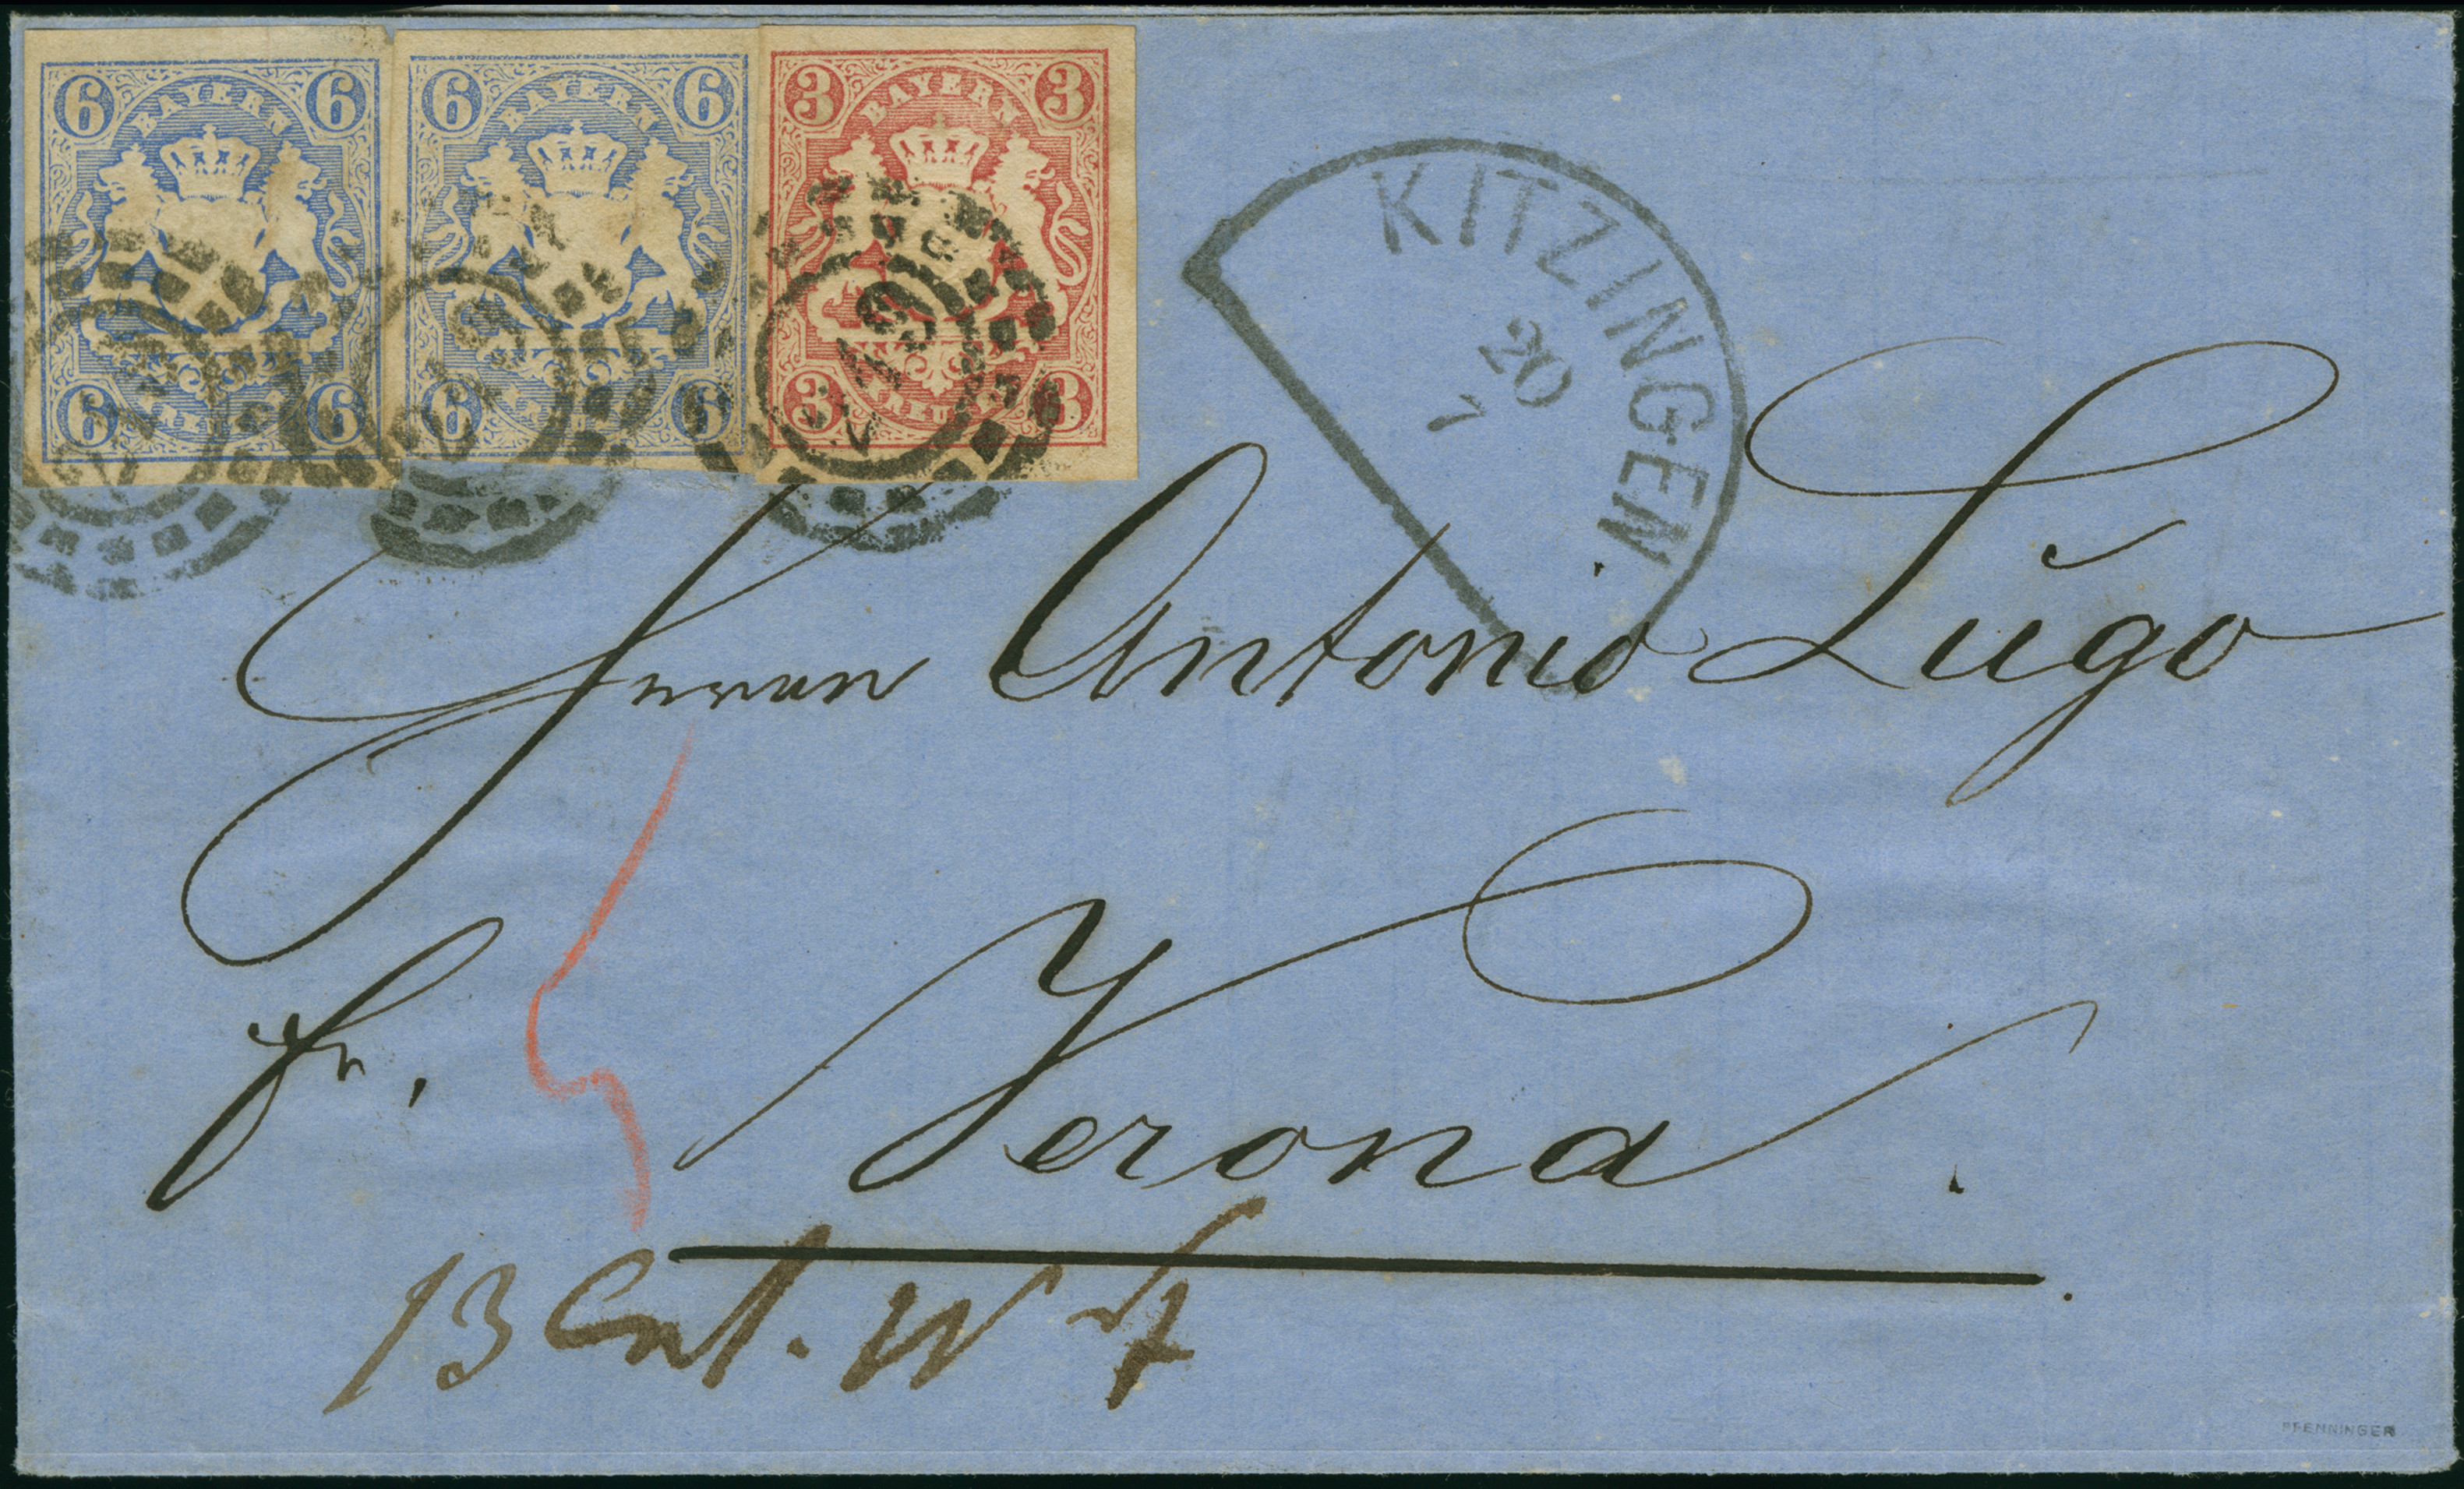 6 BAYERN 6
6 6
6 BAYERN 6
6 6
3 BAYERN 3
3 3
KITZINGEN
20
7
Herrn Antonio Lŭgo
fr.
Verona.
13 Cnt. W f
PFENNINGER